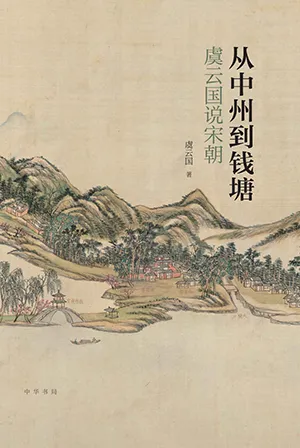 从中州到钱塘
虞云国说宋朝
虞云国 著
中华书局